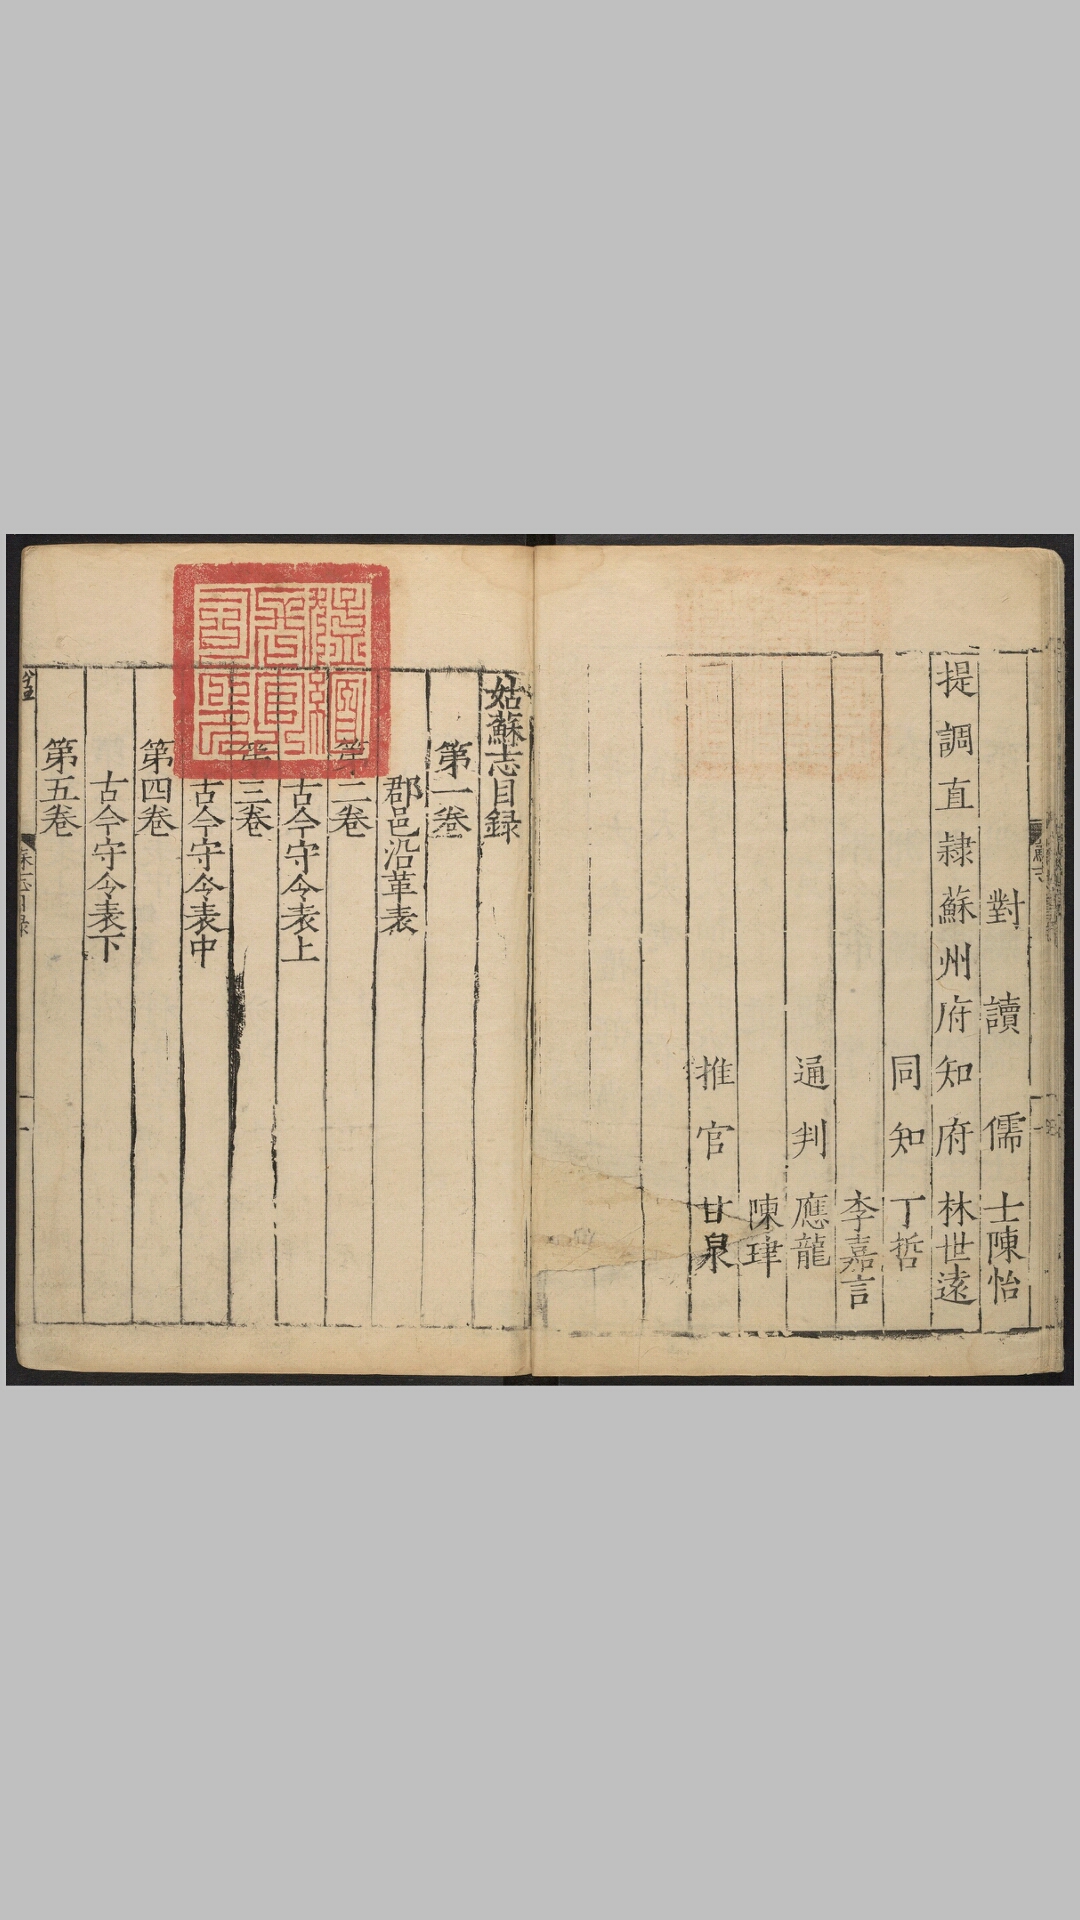 對讀儒士陳怡
提調直隷蘇州府知府林世遠
同知丁哲
李嘉言
通判應龍
陳㻔
推官甘泉
姑蘇志目録
第一卷
郡邑沿革表
第二卷
古今守令表上
第三卷
古今守令表中
第四卷
古今守令表下
第五卷